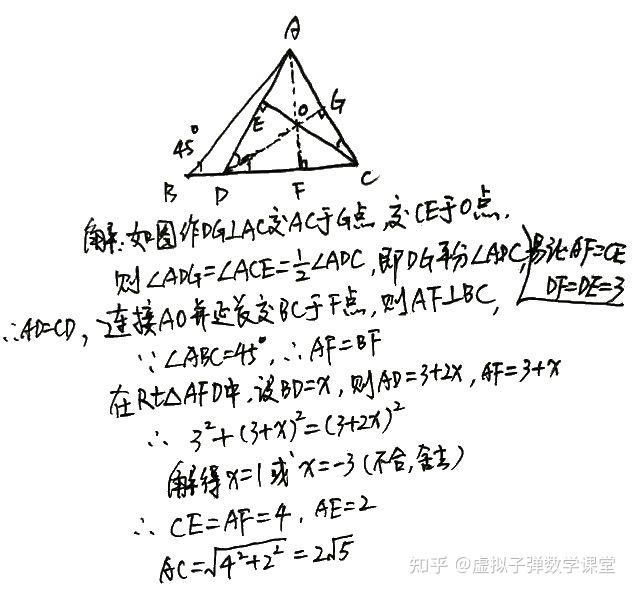 A
O
G
E
45°
B
D
F
C
解:如图作DG⊥AC交AC于G点,交CE于O点.
则∠ADG=∠ACE=½∠ADC,即DG平分∠ADC,易证AF=CE
DF=DE=3
∴AD=CD,连接AO并延长交BC于F点,则AF⊥BC,
∵∠ABC=45°,∴AF=BF
在Rt△AFD中,设BD=x,则AD=3+2x,AF=3+x
∴ 3²+(3+x)²=(3+2x)²
解得x=1或x=-3(不合,舍去)
∴ CE=AF=4,AE=2
AC=√4²+2²=2√5
知乎 @虚拟子弹数学课堂